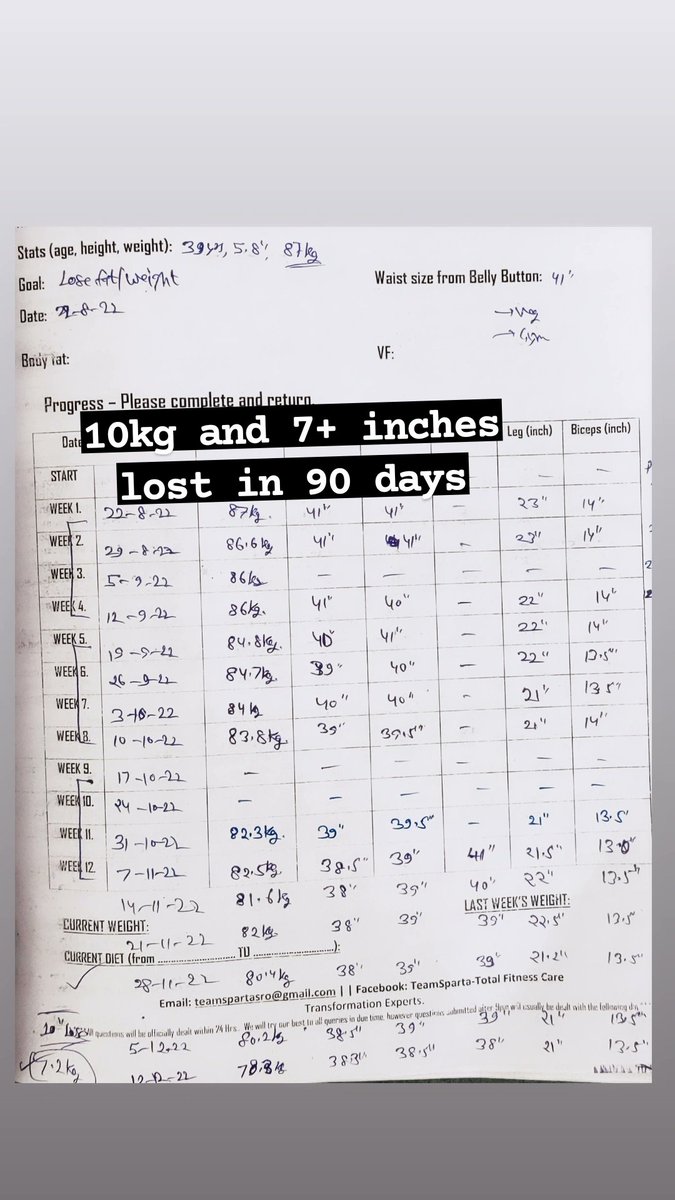 Stats (age, height, weight): 39yrs, 5.8", 87kg
Goal: Lose fat/weight
Waist size from Belly Button: 41"
Date: 22-8-22
→ Veg
→ Gym
Body fat:
VF:
Progress – Please complete and return.
10kg and 7+ inches
lost in 90 days
Date Leg (inch) Biceps (inch)
START — —
WEEK 1. 22-8-22 87kg. 41" 41" — 23" 14"
WEEK 2. 29-8-22 86.6kg 41" 41" — 23" 14"
WEEK 3. 5-9-22 86kg — — — — —
WEEK 4. 12-9-22 86kg. 41" 40" — 22" 14"
WEEK 5. 19-9-22 84.8kg. 40" 41" — 22" 14"
WEEK 6. 26-9-22 84.7kg. 39" 40" — 22" 13.5"
WEEK 7. 3-10-22 84kg 40" 40" - 21" 13.5"
WEEK 8. 10-10-22 83.8kg 39" 39.5" - 21" 14"
WEEK 9. 17-10-22 — — — — —
WEEK 10. 24-10-22 — — — — —
WEEK 11. 31-10-22 82.3kg. 39" 39.5" — 21" 13.5"
WEEK 12. 7-11-22 82.5kg. 38.5" 39" 41" 21.5"
14-11-22 81.6kg 38" 39" 40" 22" 13.5"
LAST WEEK'S WEIGHT:
CURRENT WEIGHT:
21-11-22 82kg 38" 39" 39" 22.5" 13.5"
CURRENT DIET (from .......................... TO ...........................):
28-11-22 80.4kg 38" 39" 39" 21.2" 13.5"
Email: teamspartasro@gmail.com || Facebook: TeamSparta-Total Fitness Care
Transformation Experts.
All questions will be officially dealt within 24 Hrs. We will try our best to all queries in due time, however questions submitted after 9pm will usually be dealt with the following day
5-12-22 80.2kg 38.5" 39" 39" 21" 13.5"
7.2kg
12-12-22 38.5" 38" 21" 13.5"